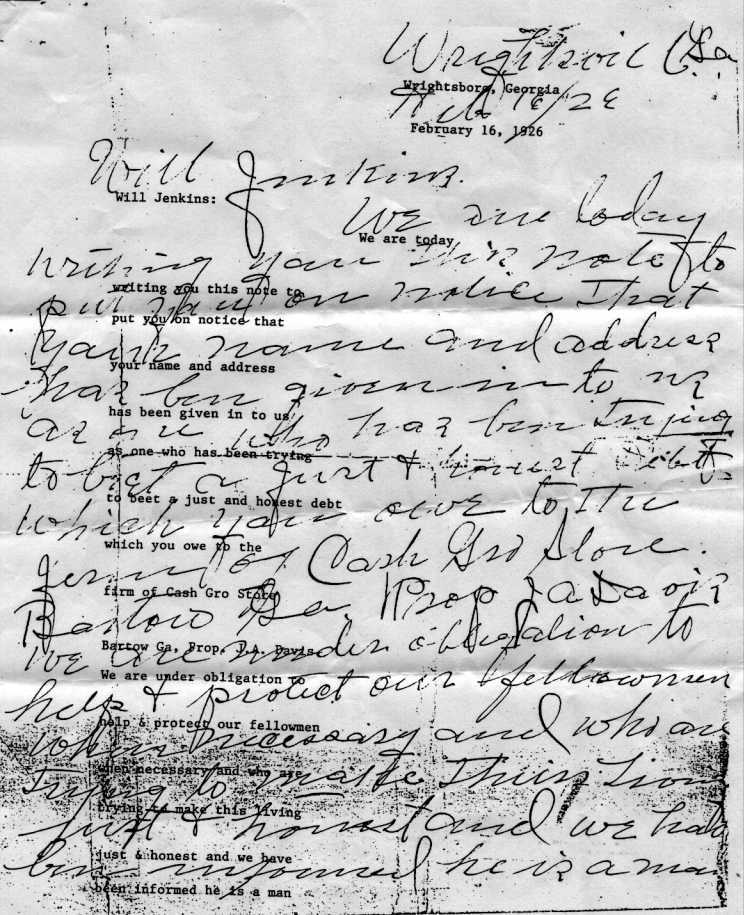 Wrightsvill Ga.
Wrightsboro, Georgia
Feb 16/26
February 16, 1926
Will Jenkins.
Will Jenkins:
We are today
We are today
writing you this note to
writing you this note to
put you on notice that
put you on notice that
your name and address
your name and address
has ben given in to us
has been given in to us
as one who has ben trying
as one who has been trying
to bet a just & honest debt
to beet a just and honest debt
which you owe to the
which you owe to the
firm of Cash Gro Store.
firm of Cash Gro Store
Bartow Ga. Prop J A Davis
Bartow Ga, Prop. J.A. Davis
We are under obligation to
We are under obligation to
help & protect our fellowmen
help & protect our fellowmen
when necessary and who are
when necessary and who are
trying to make their living
trying to make this living
just & honest and we have
just & honest and we have
ben informed he is a man
been informed he is a man